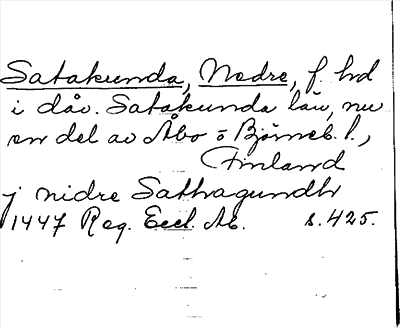 Satakunda, Nedre, f. hd
i dåv. Satakunda län, nu
en del av Åbo o Björneb. l.,
Finland
j nidre Sathagundh
1447 Reg. Eccl. Ab. s. 425.